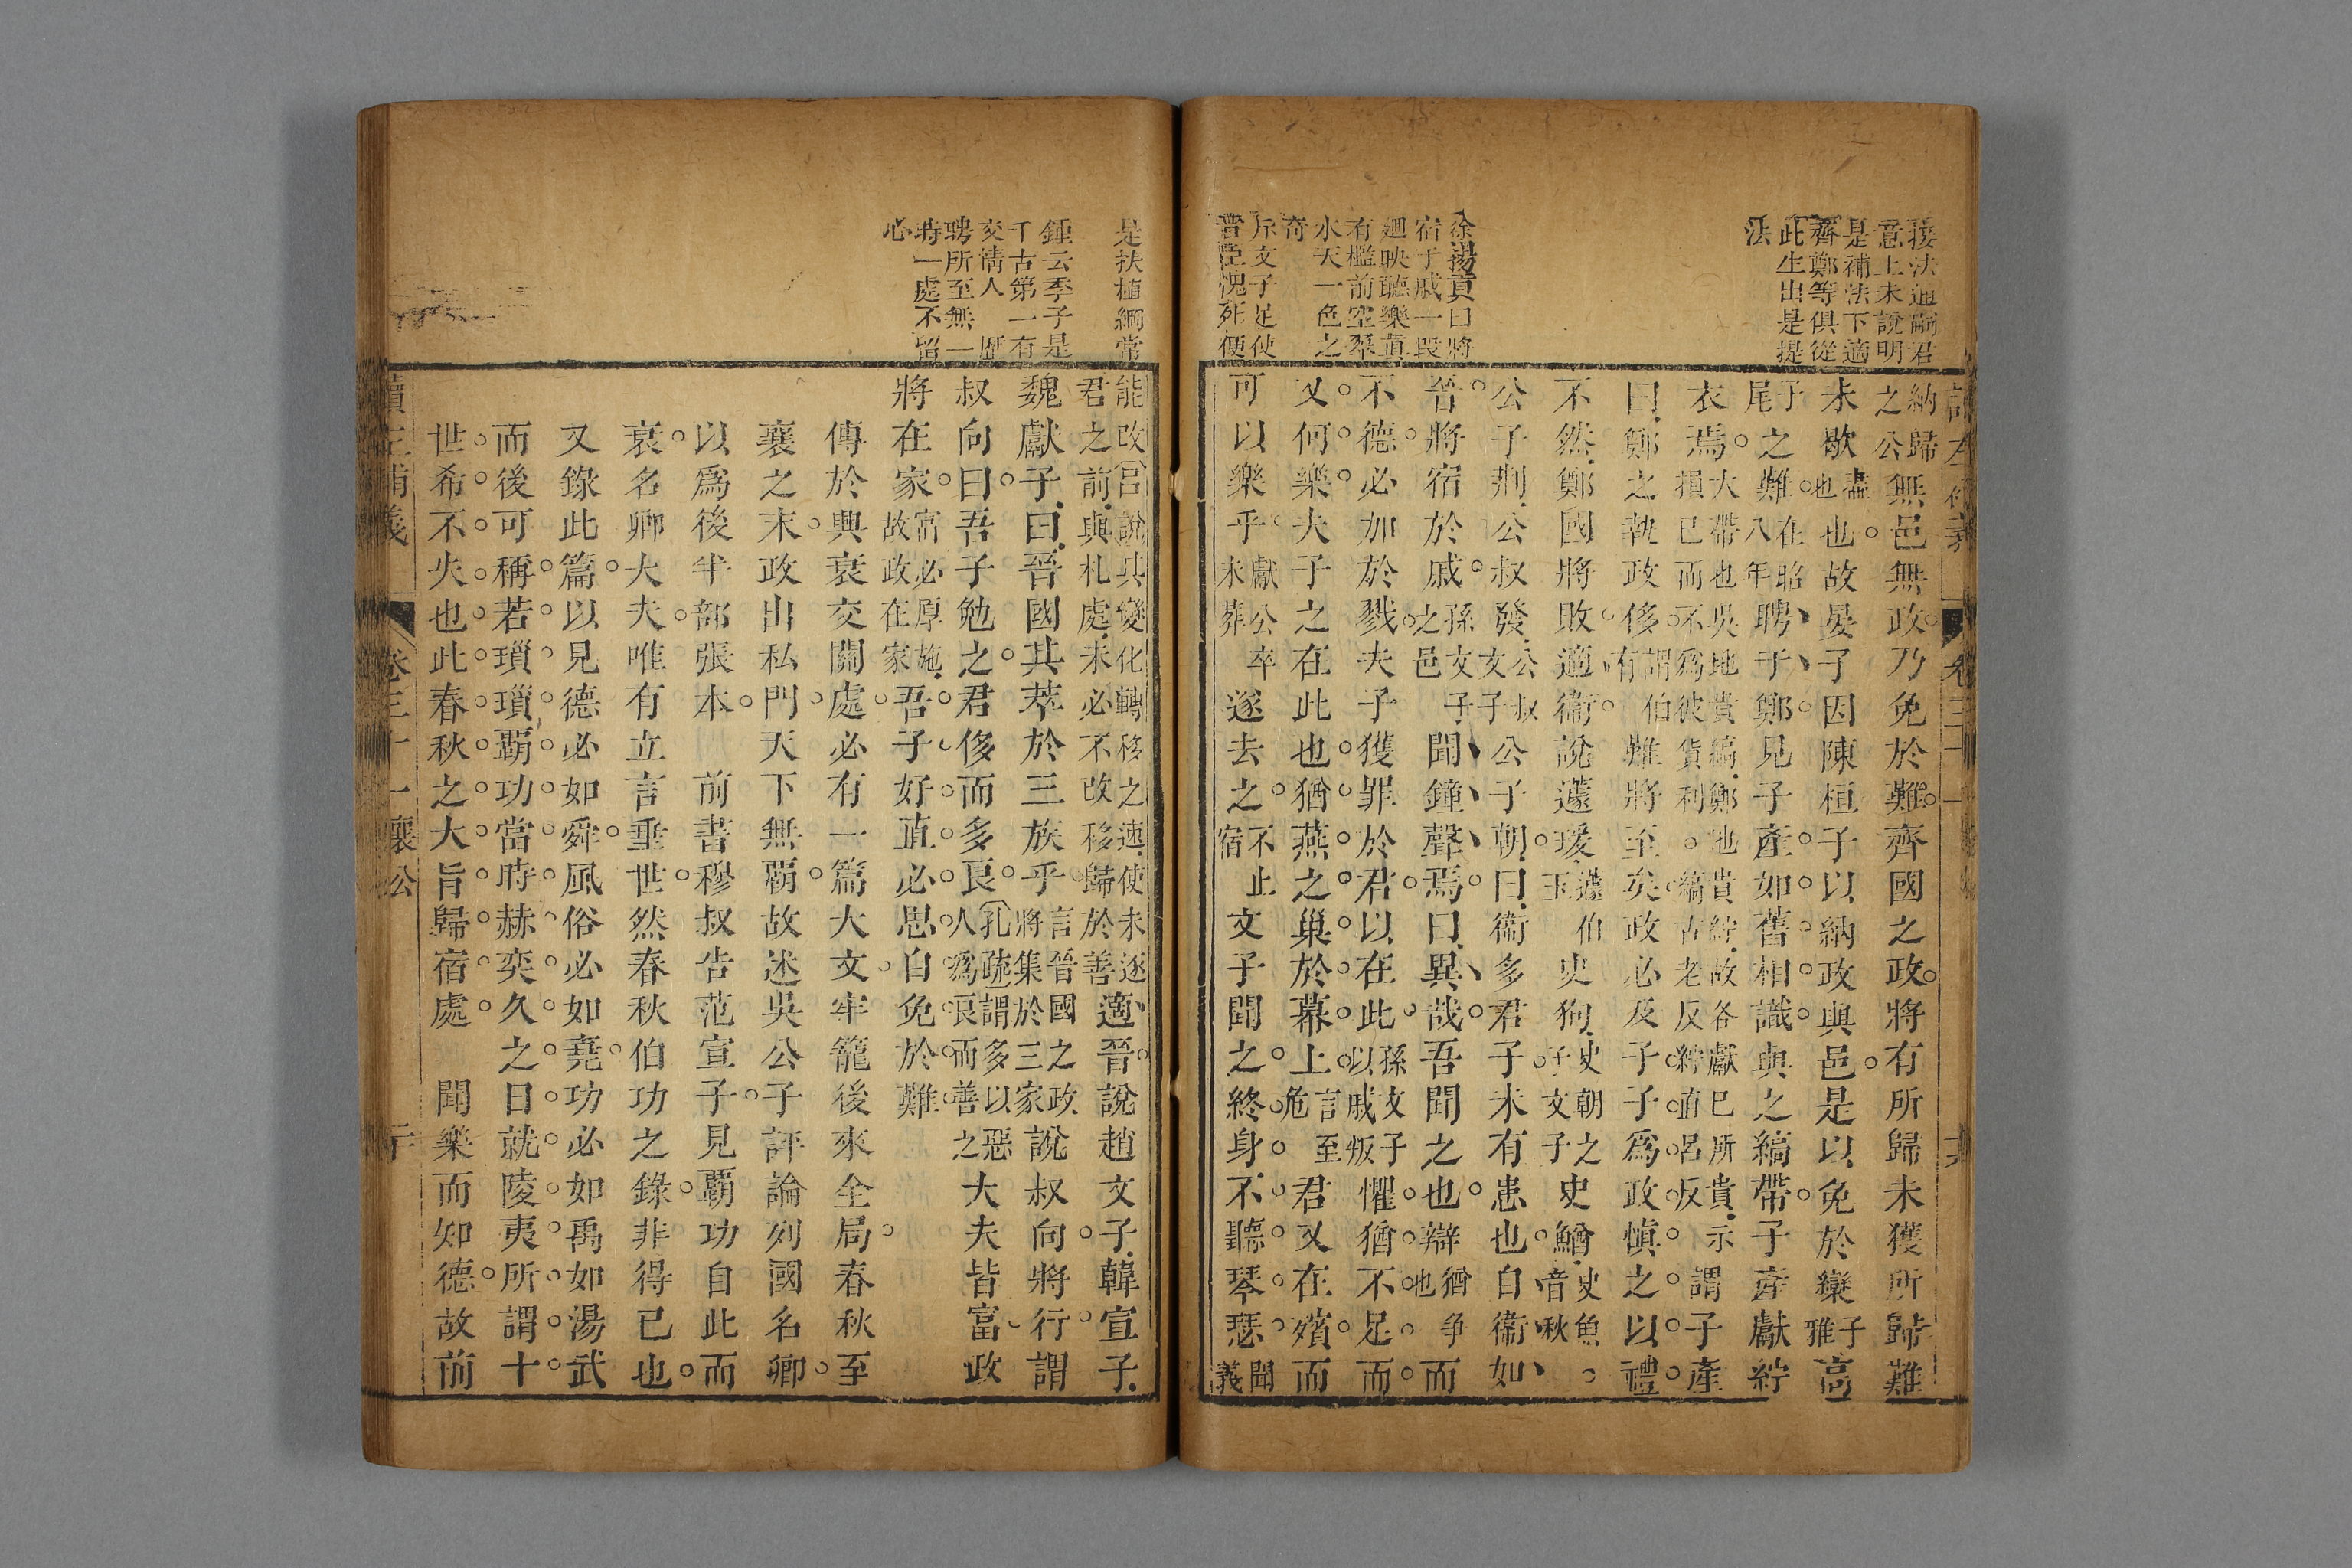 接法通嗣君
意上未說明
是補法下適
齊鄭等俱從
此生出是提
法
徐揚貢曰將
宿于戚一段
廻映聽樂真
有檻前空翠
水天一色之
奇
斥文子足使
晉臣愧死便
納歸之公無邑無政乃免於難齊國之政將有所歸未獲所歸難
未歇盡也也故晏子因陳桓子以納政與邑是以免於欒子雅高
子尾之難在昭八年聘于鄭見子產如舊相識與之縞帶子產獻紵
衣焉大帶也吳地貴縞鄭地貴紵故各獻己所貴示損已而不為彼貨利。縞古老反紵直呂反謂子產
曰鄭之執政侈謂伯有難將至矣政必及子子為政慎之以禮
不然鄭國將敗適衛說蘧瑗蘧伯玉史狗史朝之子文子史鰌史魚。音秋
公子荆公叔發公叔文子公子朝曰衛多君子未有患也自衛如
晉將宿於戚孫文子之邑聞鐘聲焉曰異哉吾聞之也辯猶爭也而
不德必加於戮夫子獲罪於君以在此孫文子以戚叛懼猶不足而
又何樂夫子之在此也猶燕之巢於幕上言至危君又在殯而
可以樂乎獻公卒未葬遂去之不止宿文子聞之終身不聽琴瑟聞義
是扶植綱常
鍾云季子是
千古第一有
交情人歷
聘所至無一
時一處不留
心
能改呂說其變化轉移之速使未逐君之前與札處未必不改移歸於善適晉說趙文子韓宣子
魏獻子曰晉國其萃於三族乎言晉國之政將集於三家說叔向將行謂
叔向曰吾子勉之君侈而多良孔疏謂多以惡人為良而善之大夫皆富政
將在家富必厚施故政在家吾子好直必思自免於難
傳於興衰交關處必有一篇大文牢籠後來全局春秋至
襄之末政出私門天下無覇故述吳公子評論列國名卿
以為後半部張本前書穆叔告范宣子見覇功自此而
衰名卿大夫唯有立言垂世然春秋伯功之錄非得已也
又錄此篇以見德必如舜風俗必如堯功必如禹如湯武
而後可稱若瑣瑣覇功當時赫奕久之日就陵夷所謂十
世希不失也此春秋之大旨歸宿處聞樂而知德故前
讀左補義 卷三十一襄公